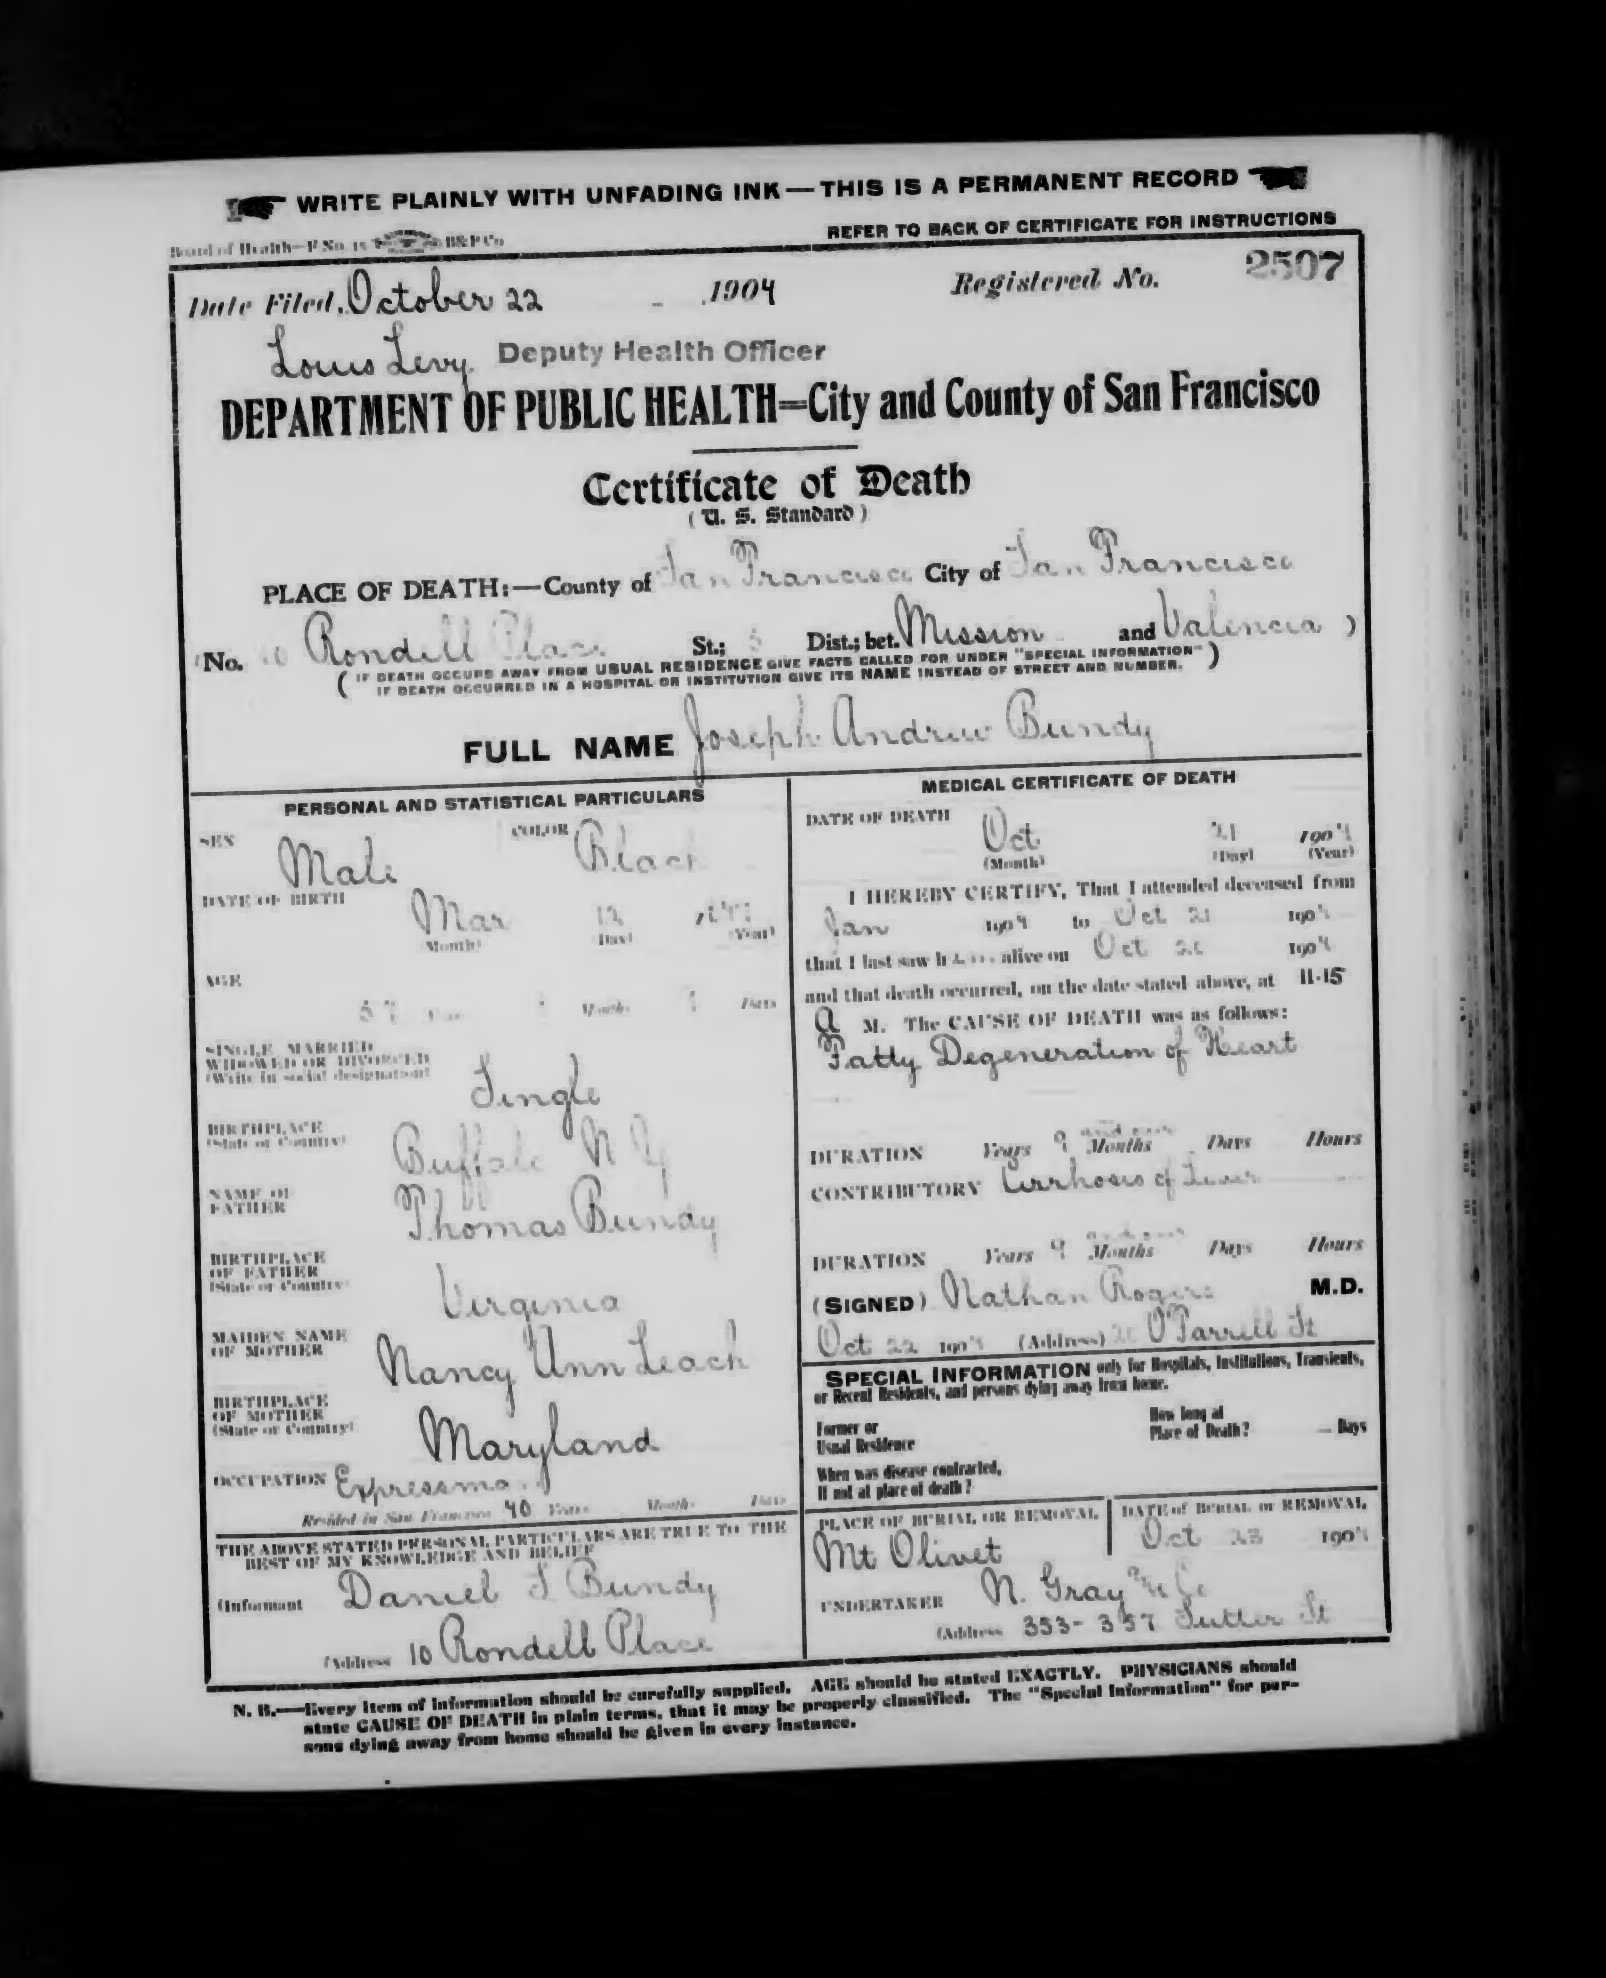 WRITE PLAINLY WITH UNFADING INK — THIS IS A PERMANENT RECORD
Board of Health—F. No. 15 B&P Co
REFER TO BACK OF CERTIFICATE FOR INSTRUCTIONS
Date Filed, October 22 1904 Registered No. 2507
Louis Levy Deputy Health Officer
DEPARTMENT OF PUBLIC HEALTH=City and County of San Francisco
Certificate of Death
( U. S. Standard )
PLACE OF DEATH:—County of San Francisco City of San Francisco
(No. 10 Rondell Place St.; 5 Dist.; bet. Mission and Valencia )
( IF DEATH OCCURS AWAY FROM USUAL RESIDENCE GIVE FACTS CALLED FOR UNDER "SPECIAL INFORMATION" )
IF DEATH OCCURRED IN A HOSPITAL OR INSTITUTION GIVE ITS NAME INSTEAD OF STREET AND NUMBER.
FULL NAME Joseph Andrew Bundy
PERSONAL AND STATISTICAL PARTICULARS
SEX Male COLOR Black
DATE OF BIRTH Mar 12
(Month) (Day) (Year)
AGE
57 Years Months Days
SINGLE MARRIED
WIDOWED OR DIVORCED
(Write in social designation)
Single
BIRTHPLACE
(State or Country)
Buffalo N Y
NAME OF
FATHER
Thomas Bundy
BIRTHPLACE
OF FATHER
(State or Country)
Virginia
MAIDEN NAME
OF MOTHER
Nancy Ann Leach
BIRTHPLACE
OF MOTHER
(State or Country)
Maryland
OCCUPATION Expressman
Resided in San Francisco 40 Years Months Days
THE ABOVE STATED PERSONAL PARTICULARS ARE TRUE TO THE
BEST OF MY KNOWLEDGE AND BELIEF
(Informant Daniel S Bundy
(Address 10 Rondell Place
MEDICAL CERTIFICATE OF DEATH
DATE OF DEATH
Oct 21 1904
(Month) (Day) (Year)
I HEREBY CERTIFY, That I attended deceased from
Jan 1904 to Oct 21 1904
that I last saw him alive on Oct 20 1904
and that death occurred, on the date stated above, at 11-15
A M. The CAUSE OF DEATH was as follows:
Fatty Degeneration of Heart
DURATION Years 9 Months Days Hours
CONTRIBUTORY Cirrhosis of Liver
DURATION Years 9 Months Days Hours
(SIGNED) Nathan Rogers M.D.
Oct 22 1904 (Address) O'Farrell St
SPECIAL INFORMATION only for Hospitals, Institutions, Transients,
or Recent Residents, and persons dying away from home.
Former or
Usual Residence
How long at
Place of Death? Days
When was disease contracted,
If not at place of death?
PLACE OF BURIAL OR REMOVAL
Mt Olivet
DATE of BURIAL or REMOVAL
Oct 23 1904
UNDERTAKER N. Gray & Co
(Address 353-357 Sutter St
N. B.—Every item of information should be carefully supplied. AGE should be stated EXACTLY. PHYSICIANS should
state CAUSE OF DEATH in plain terms, that it may be properly classified. The "Special Information" for per-
sons dying away from home should be given in every instance.